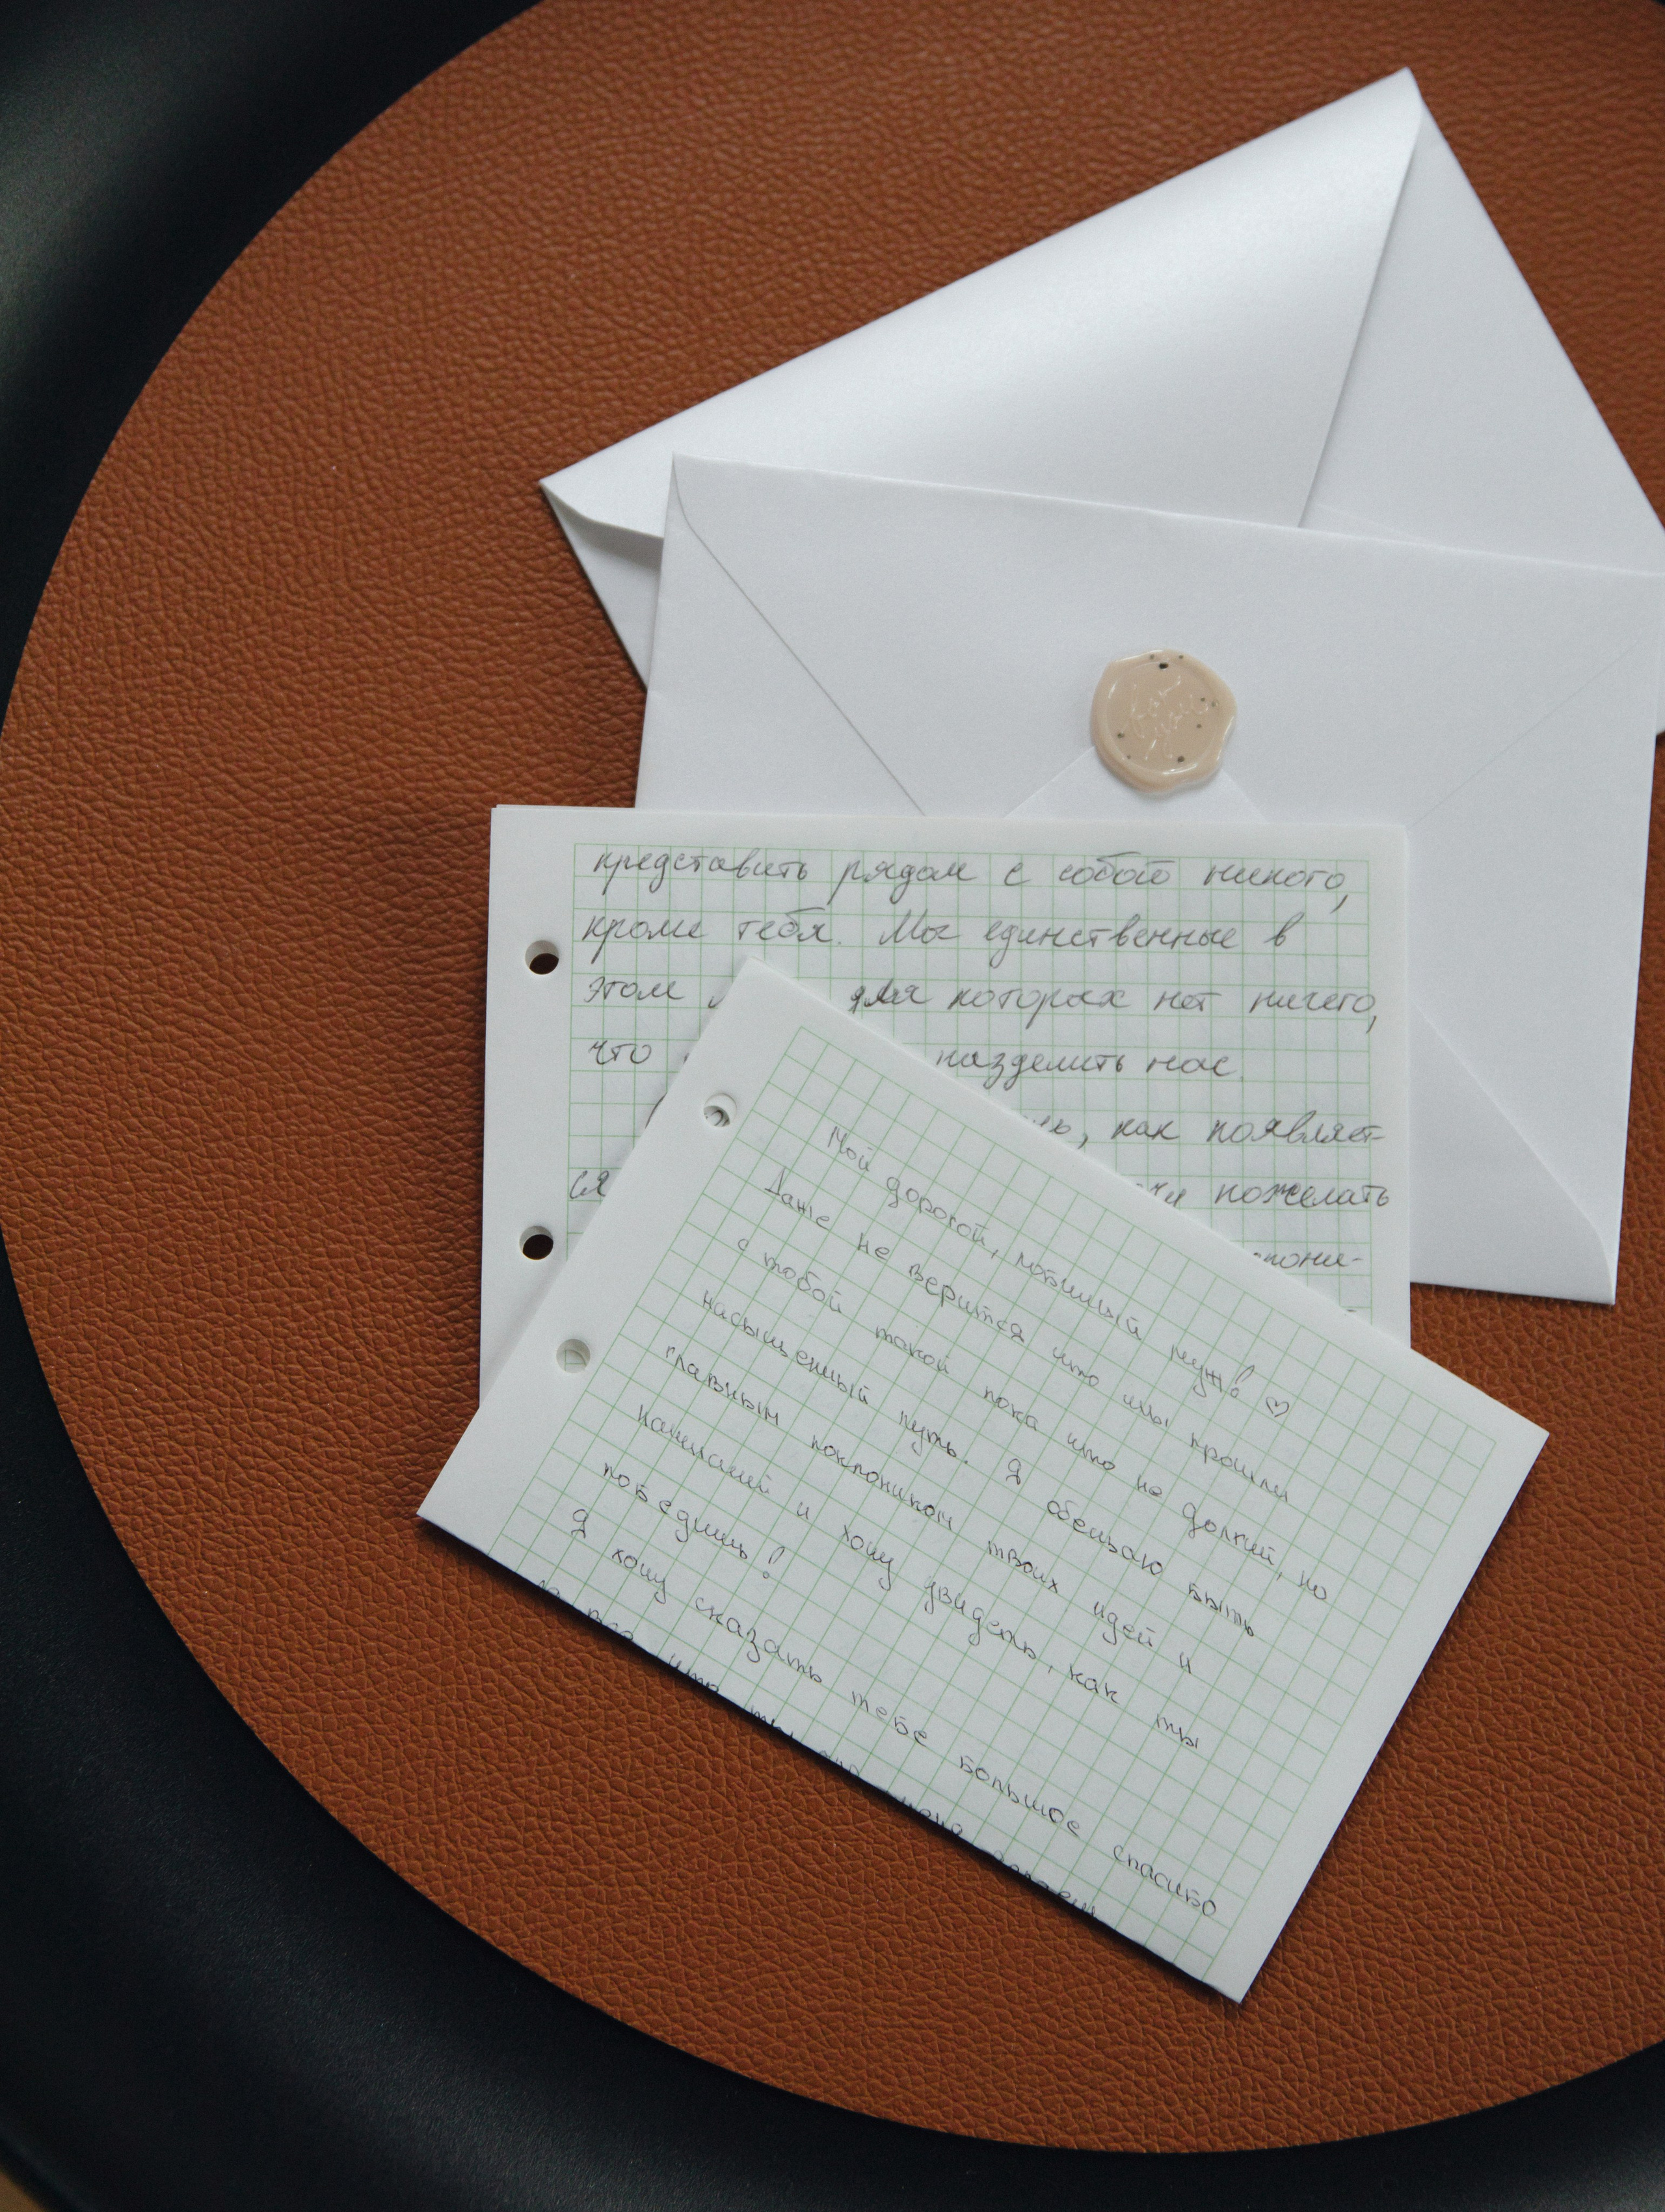 представить рядом с собой никого,
кроме тебя. Мы единственные в
этом для которых нет ничего,
что разделить нас.
как появляет-
ся пожелать
Мой дорогой, любимый муж! ♡
Даже не верится что мы прошли
с тобой такой пока что не долгий, но
насыщенный путь. Я обещаю быть
главным поклонником твоих идей и
начинаний и хочу увидеть, как ты
победишь!
Я хочу сказать тебе большое спасибо